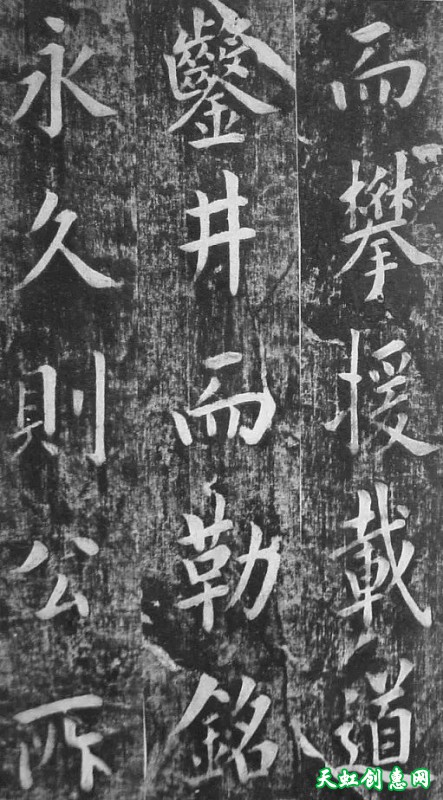 而攀援載道
鑿井而勒銘
永久則公所
天虹创惠网